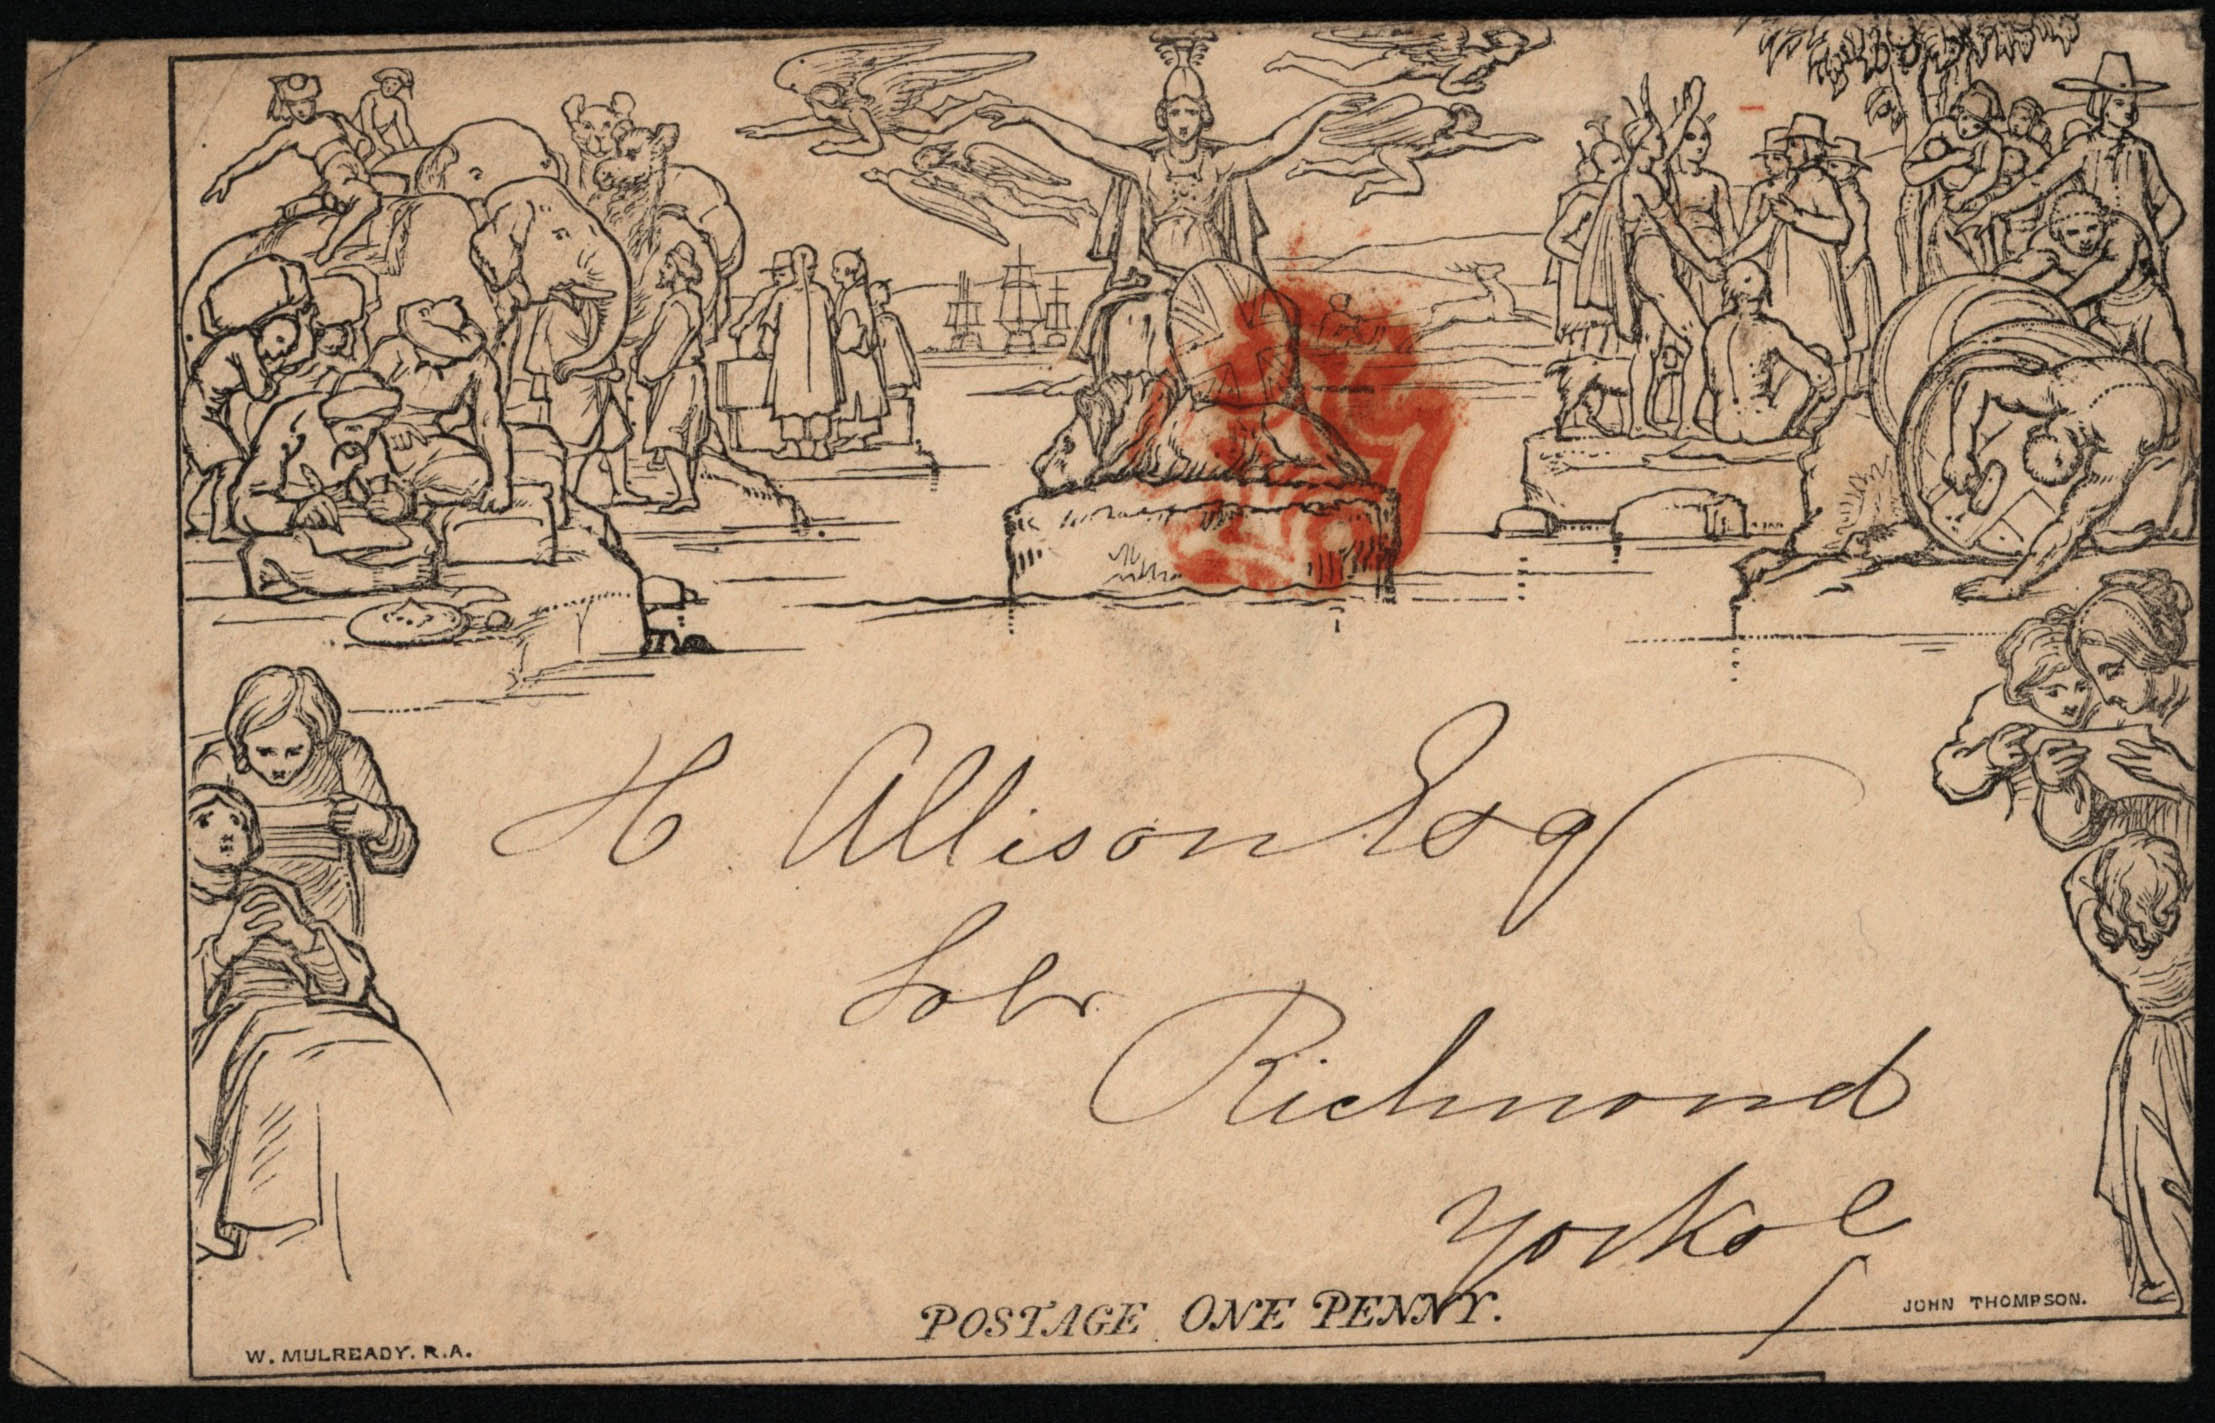 H. Allison Esq
Solr
Richmond
Yorks
POSTAGE ONE PENNY.
W. MULREADY. R.A.
JOHN THOMPSON.